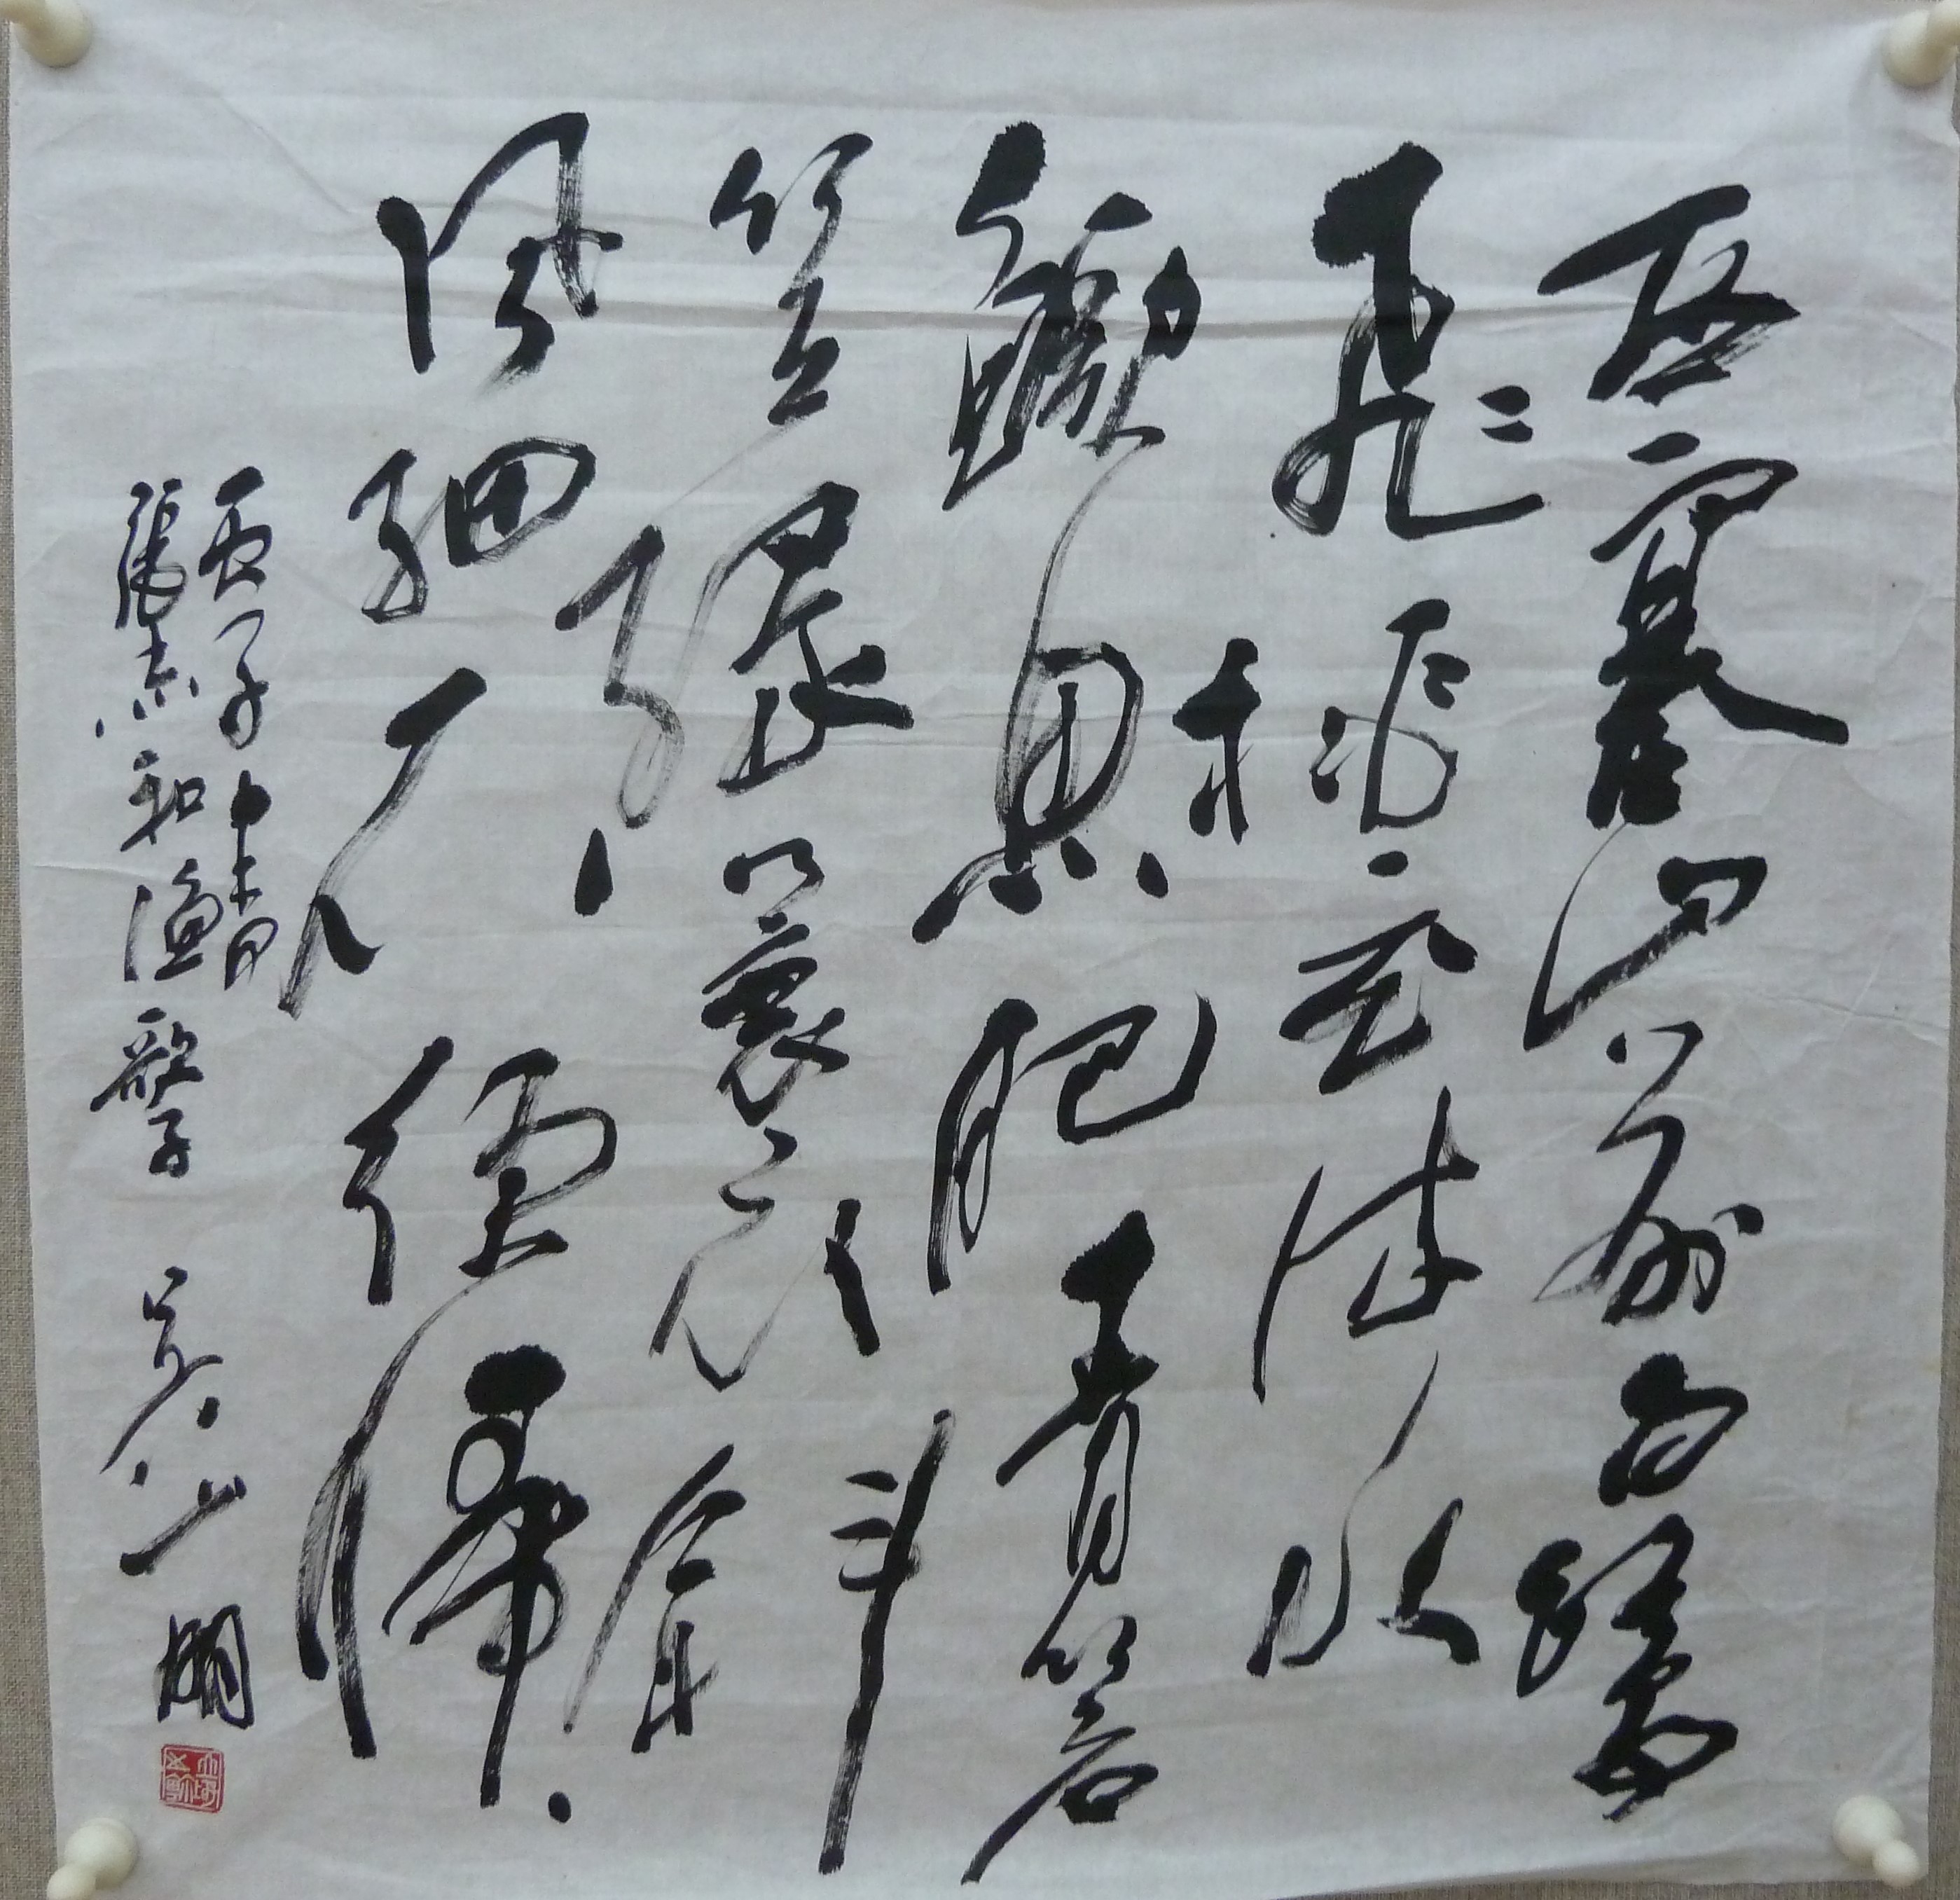 西塞山前白鷺
飛桃花流水
鱖魚肥青箬
笠綠蓑衣斜
風細不須歸
張志和漁歌子 明